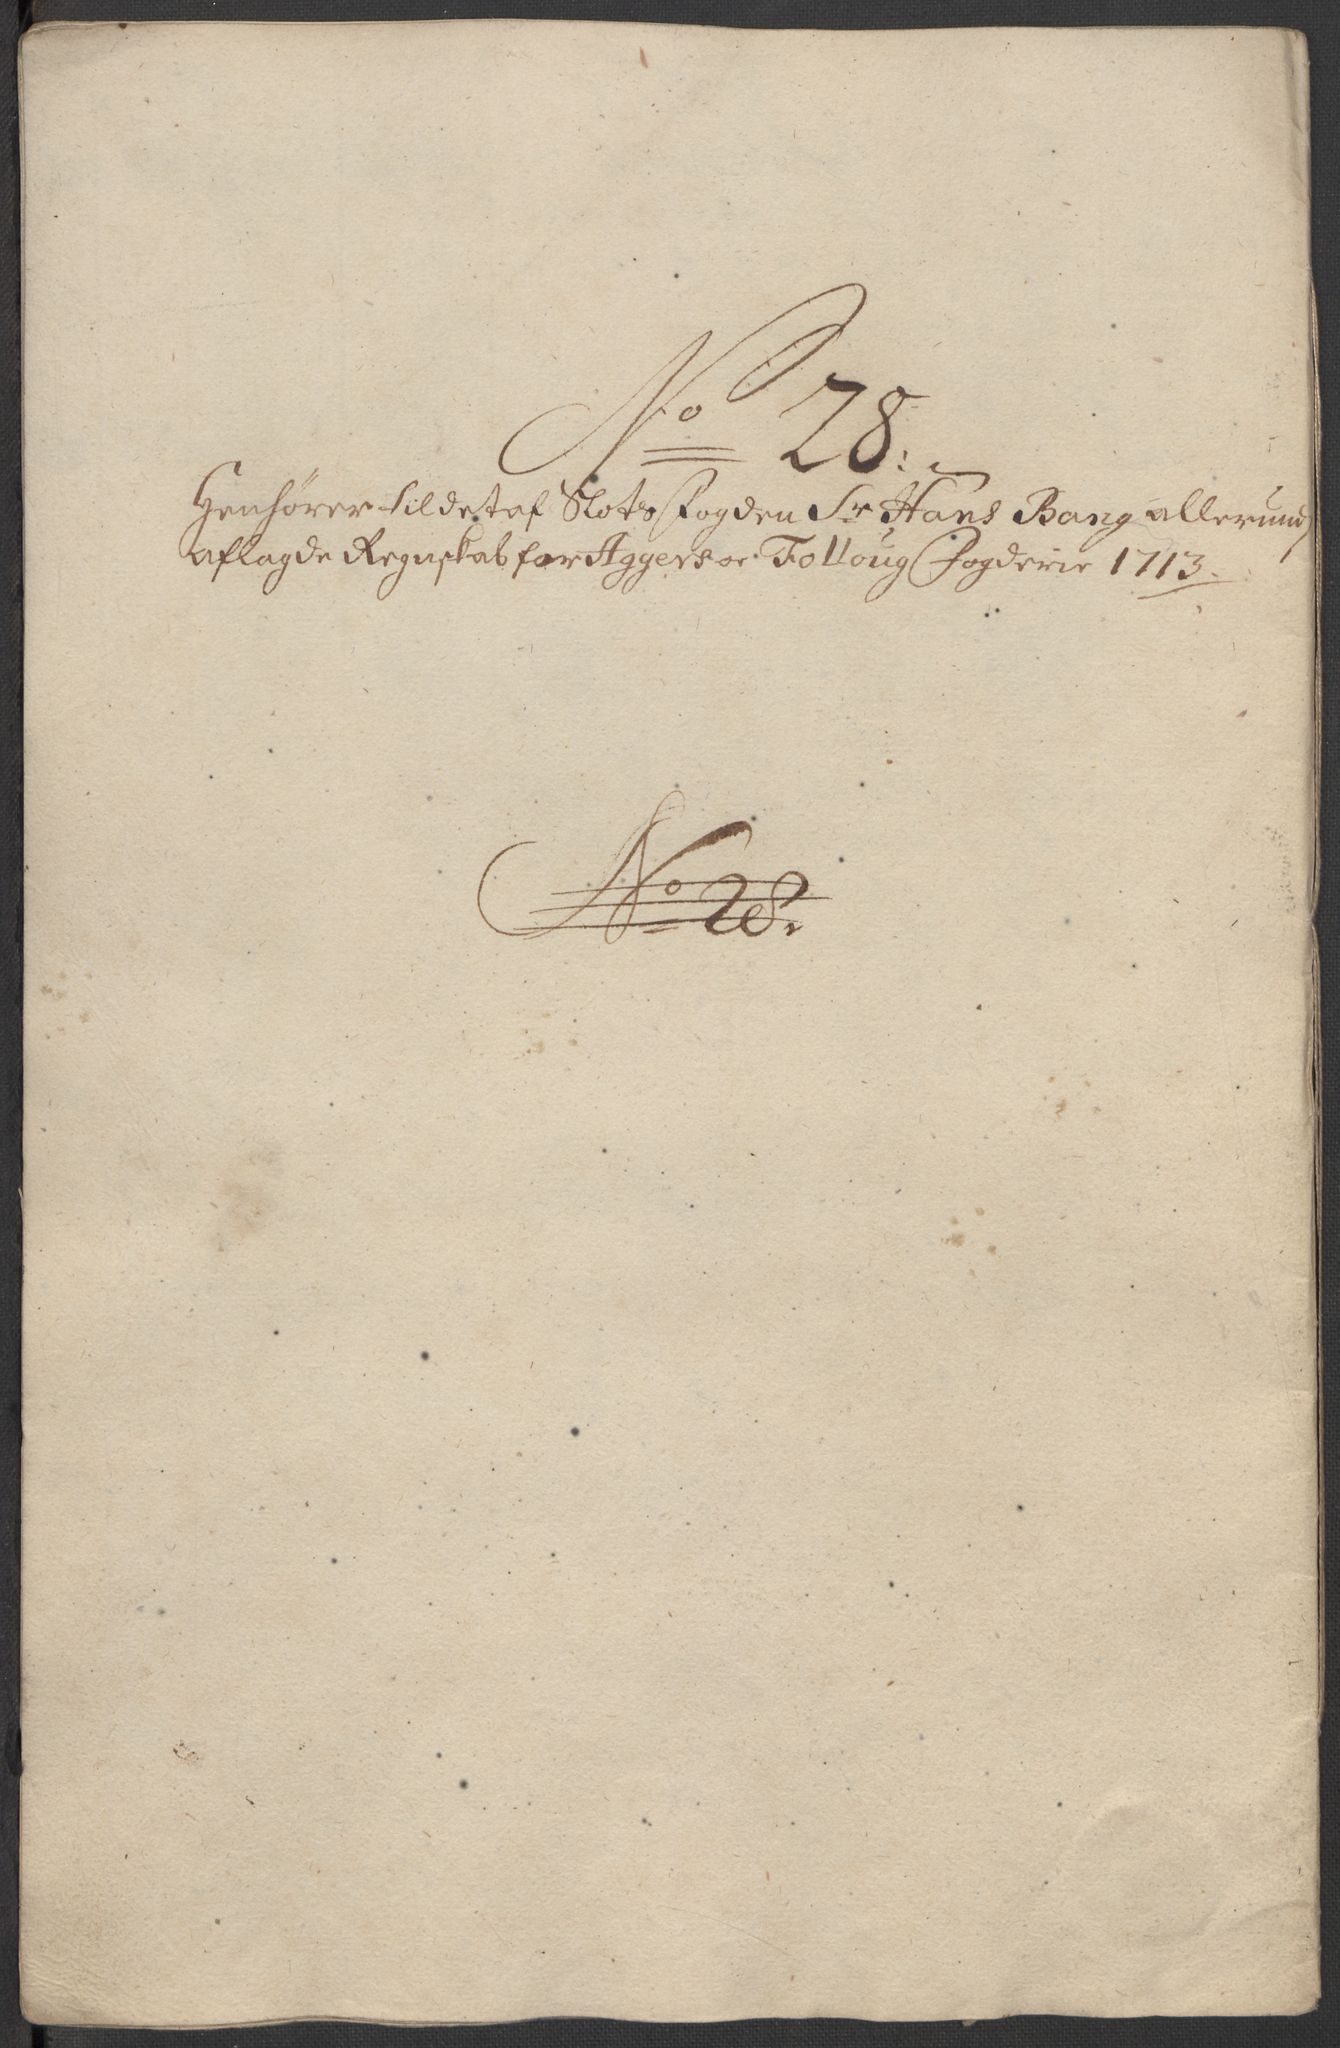 No 28:
Henhører til det af Slots Fogden Sr Hans Bang allerund
aflagde Regnskab for Aggers oe Folloug Fogderie 1713.
No 28.